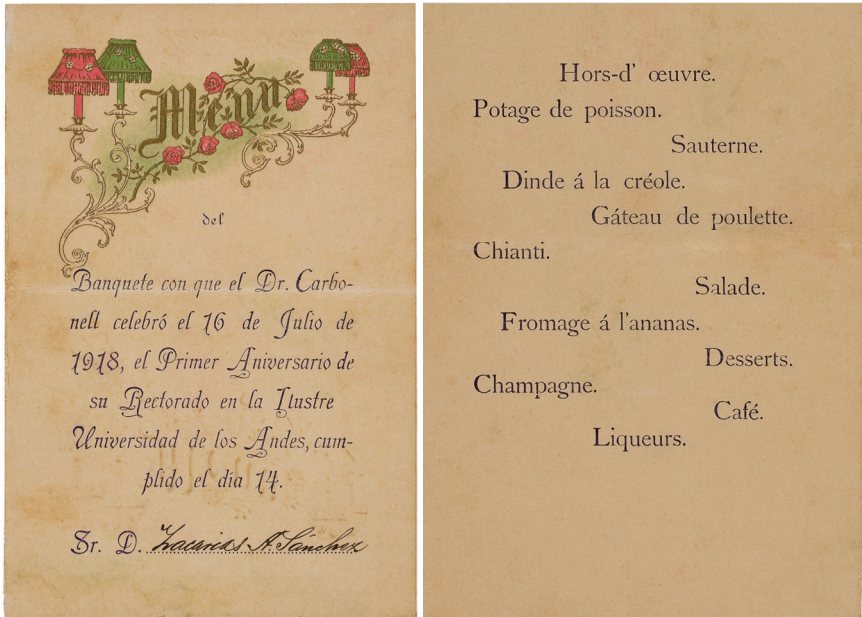 Menu
del
Banquete con que el Dr. Carbo-
nell celebró el 16 de Julio de
1918, el Primer Aniversario de
su Rectorado en la Ilustre
Universidad de los Andes, cum-
plido el día 14.
Sr. D. Zacarías A. Sánchez
Hors-d' œuvre.
Potage de poisson.
Sauterne.
Dinde á la créole.
Gáteau de poulette.
Chianti.
Salade.
Fromage á l'ananas.
Desserts.
Champagne.
Café.
Liqueurs.